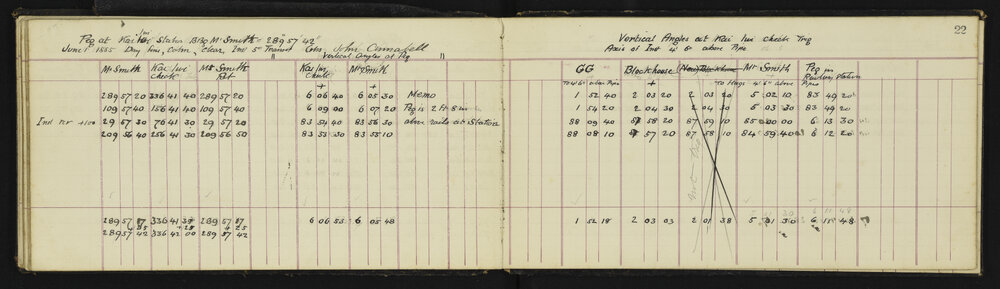 22
Peg at Kai Iwi Station Brg Mt Smith = 289° 57' 42"
June 1 1885 Day fine, Calm, Clear, Inst 5" Transit Obs John Annabell
Vertical Angles at Peg
Mt Smith Kai Iwi check Mt Smith Rpt
Kai Iwi Check Mt Smith
+ +
289 57 20 336 41 40 289 57 20 6 06 40 6 05 30 Memo
109 57 40 156 41 40 109 57 40 6 09 00 6 07 20 Peg is 2 ft 8 in
Ind nr +100 29 57 30 76 41 30 29 57 20 83 54 40 83 56 30 above rails at Station
209 56 40 256 41 30 209 56 50 83 53 30 83 55 10
289 57 17 336 41 35 289 57 17 6 06 53 6 05 48
+ 25 + 25 + 25
289 57 42 336 42 00 289 57 42
Vertical Angles at Kai Iwi check Trig
Axis of Inst 4' 6" above Pipe
GG Blockhouse Mt Smith Peg in Railway Station
+
1 52 40 2 03 20 2 03 20 5 02 10 83 49 20
1 54 20 2 04 30 2 04 30 5 03 30 83 49 20
88 09 40 58 20 87 59 10 85 00 00 6 13 30
88 08 10 57 20 87 58 10 84 59 40 6 12 20
1 52 18 2 03 03 2 01 38 5 01 30 6